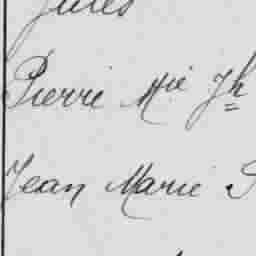 Jules
Pierre Mie Jh
Jean Marie